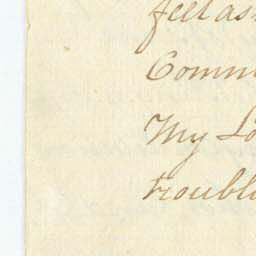 feel as
Comm
My Lo
troubl